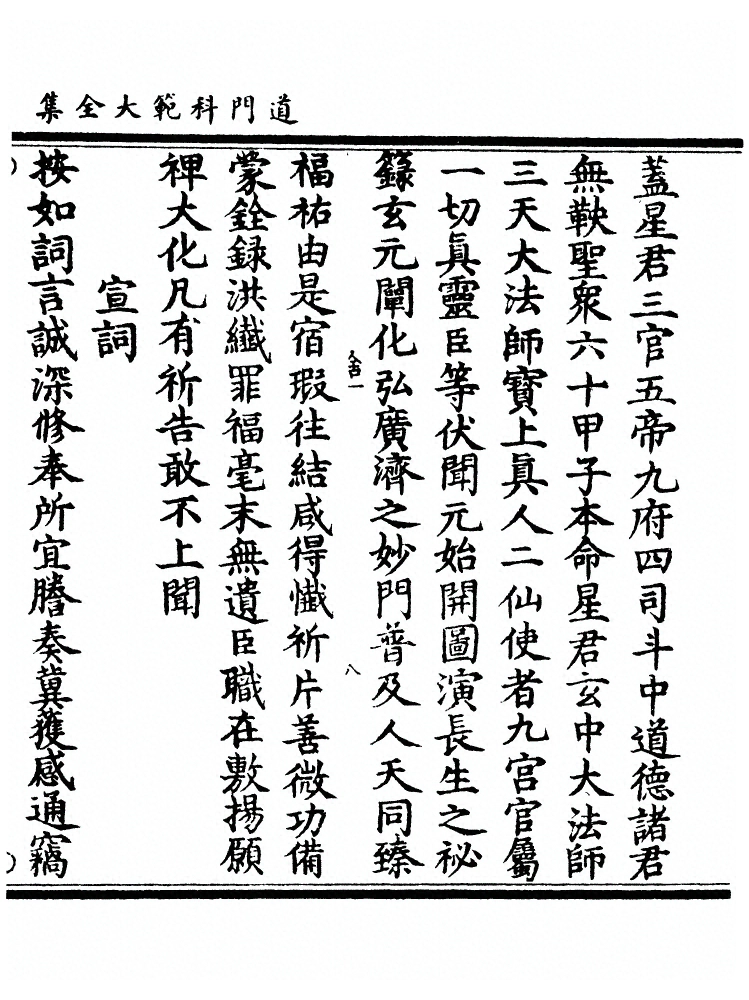 道門科範大全集
蓋星君三官五帝九府四司斗中道德諸君
無鞅聖衆六十甲子本命星君玄中大法師
三天大法師寶上眞人二仙使者九宫官屬
一切眞靈臣等伏聞元始開圖演長生之祕
籙玄元闡化弘廣濟之妙門普及人天同臻
八
福祐由是宿瑕往結咸得懺祈片善微功備
蒙銓録洪纎罪福毫末無遺臣職在敷揚願
裨大化凡有祈告敢不上聞
宣詞
按如詞言誠深修奉所宜謄奏冀獲感通竊